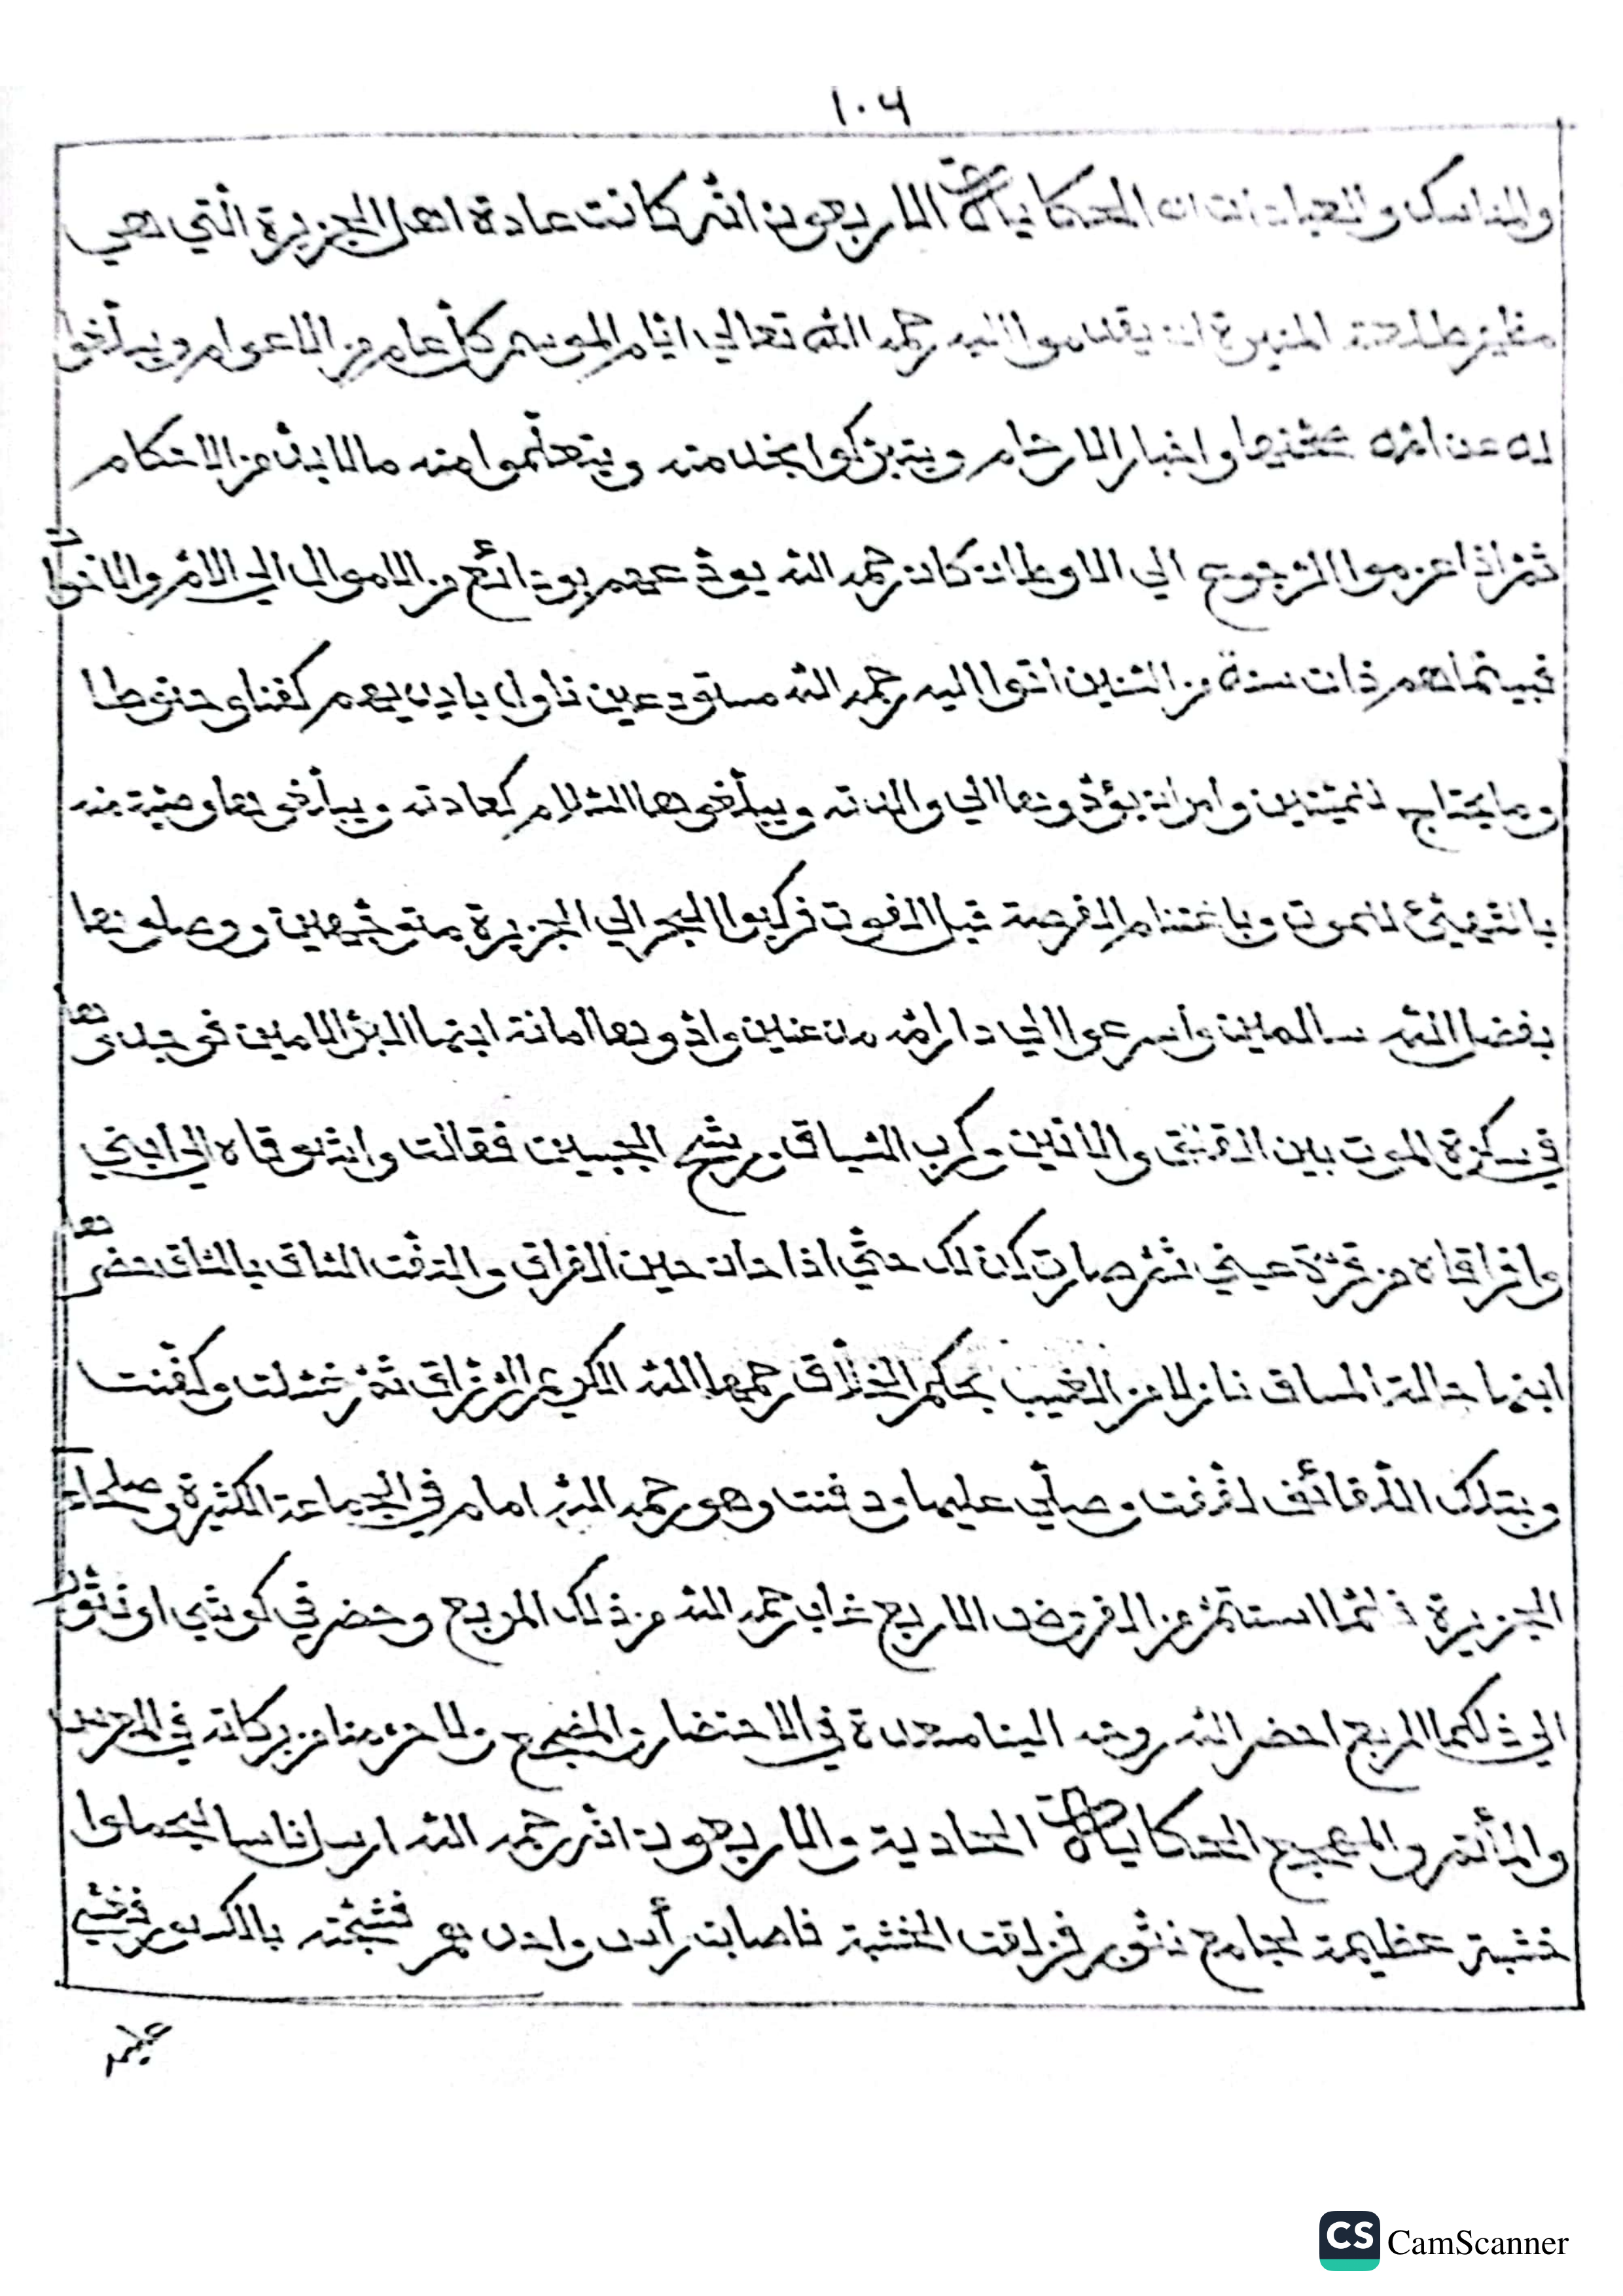 ١٠٤
والمناسك والعبادات الحكاية الاربعون انه كانت عادة اهل الجزيرة التي هي
طلعته المنيرة ان يقدموا اليه رحمه الله تعالي ايام الموسم كل عام من الاعوام ويبلغوا
له عن امه واخبار الارحام ويتبركوا بخدمته ويتعلموا منه مالابد من الاحكام
ثم اذا عزموا الرجوع الي الاوطان كان رحمه الله يودعهم بودائع من الاموال الي الام والاخوات
فبينما هم ذات سنة من السنين اتوا اليه رحمه الله مستودعين ناول بايديهم كفنا وحنوطا
وما يحتاج للميتين وامران يؤدونها الي والدته ويبلغوها السلام كعادته ويبلغوها وصية منه
بالتهيئ للموت وباغتنام الفرصة قبل الفوت فركبوا البحر الي الجزيرة متوجهين ووصلونها
بفضل الله سالمين واسرعوا الي دار امه مذعنين وادونها امانة ابنها البر الامين فوجدوها
في سكرة الموت بين والانين وكرب السياق ورشح الجبين فقالت واشوقاه الي ابني
وافراقاه من قرة عيني ثم صارت كذلك حتي اذا حان حين الفراق والتفت الساق بالساق حضرها
ابنها حالة المساق نازلا من الغيب بحكم الخلاق رحمها الله الكريم الرزاق ثم غسلت وكفنت
وبتلك اللفائف لففت وصلي عليها ودفنت وهو رحمه الله امام في الجماعة الكثيرة وصلحاء
الجزيرة فلما استتم من الفروض الاربع غاب رحمه الله من ذلك المربع وحضر في كوشي اونتور
الي ذلكما المربع احضر الله روحه الينا معدة في الاحتضار والمضجع ولا حرمنا من بركاته في
والمأتم والمجمع الحكاية الحادية والاربعون انه رحمه الله ارسل اناسا ليحملوا
خشبة عظيمة لجامع نتور فزلقت الخشبة فاصابت رأس واحد بهم فشجته بالكسر فغشي
عليه
CS CamScanner